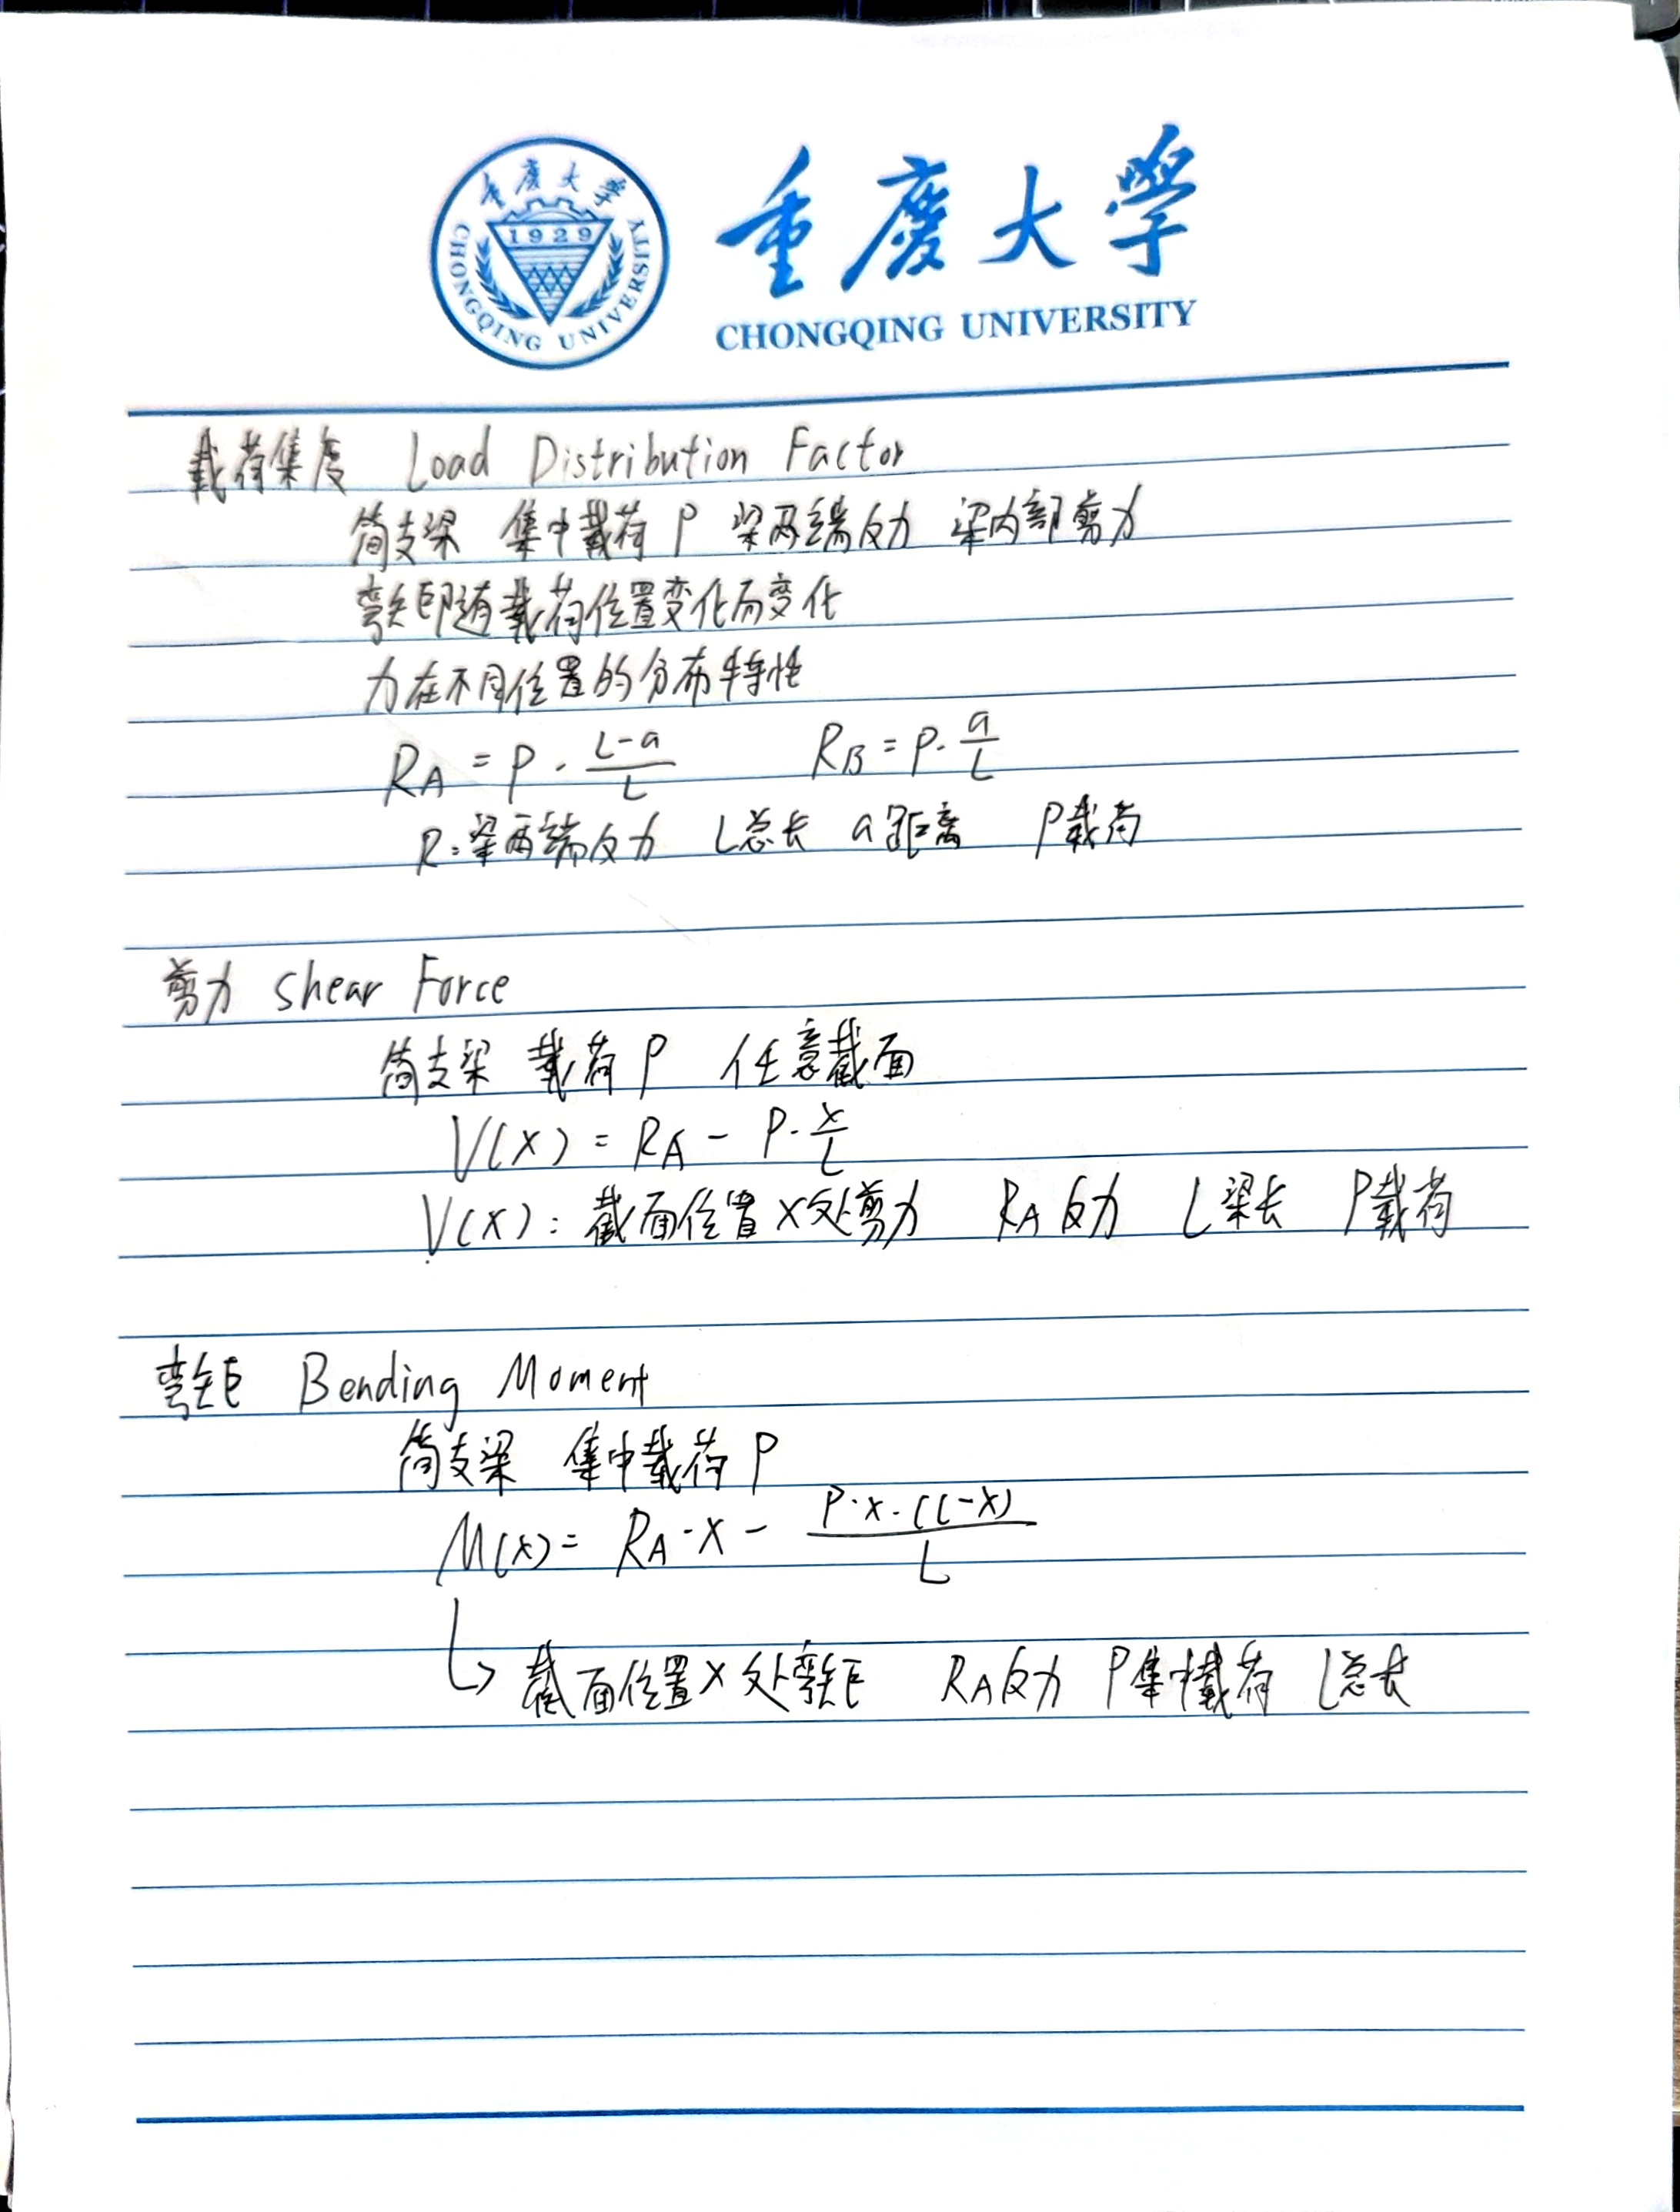 重慶大學
1929
CHONGQING UNIVERSITY
重慶大學
CHONGQING UNIVERSITY
载荷集度 Load Distribution Factor
简支梁 集中载荷P 梁两端反力 梁内部剪力
弯矩即随载荷位置变化而变化
力在不同位置的分布特性
RA = P · (L-a)/L RB = P · a/L
R: 梁两端反力 L总长 a距离 P载荷
剪力 Shear Force
简支梁 载荷P 任意截面
V(x) = RA - P · x/L
V(x): 截面位置x处剪力 RA反力 L梁长 P载荷
弯矩 Bending Moment
简支梁 集中载荷P
M(x) = RA · x - P·x·(L-x)/L
↳ 截面位置x处弯矩 RA反力 P集中载荷 L总长